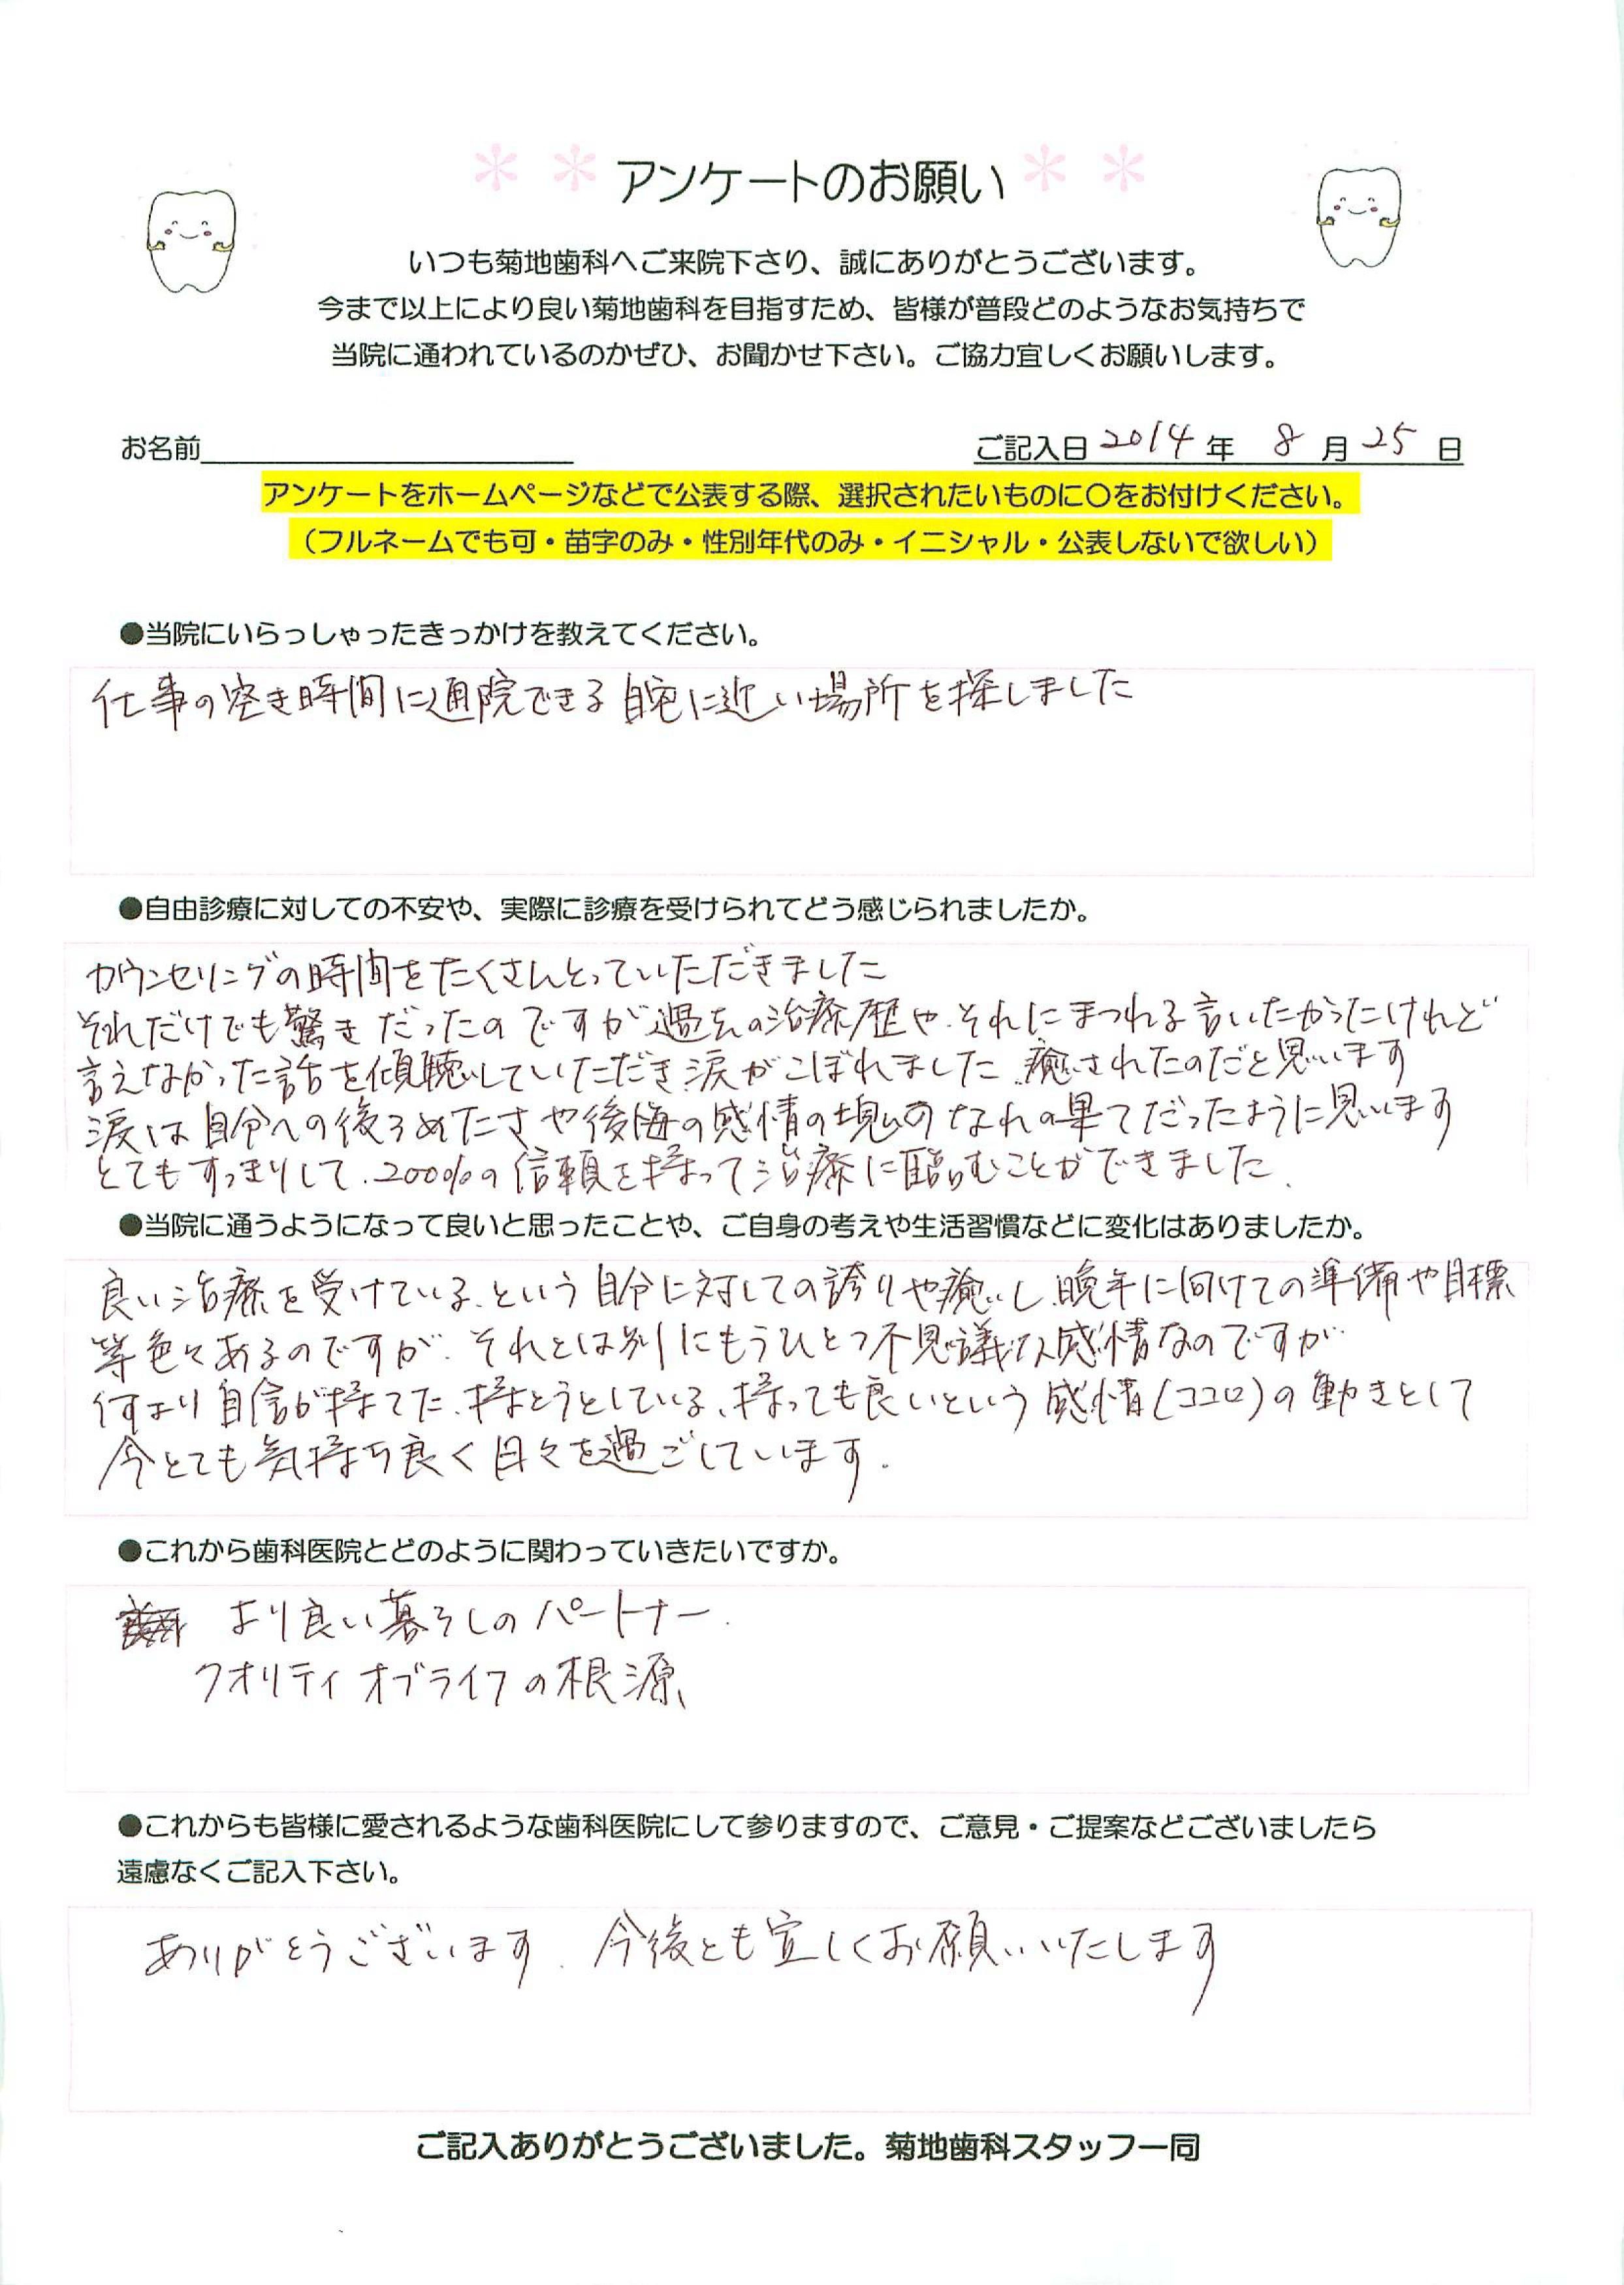 アンケートのお願い
いつも菊地歯科へご来院下さり、誠にありがとうございます。
今まで以上により良い菊地歯科を目指すため、皆様が普段どのようなお気持ちで
当院に通われているのかぜひ、お聞かせ下さい。ご協力宜しくお願いします。
お名前 ご記入日 2014 年 8 月 25 日
アンケートをホームページなどで公表する際、選択されたいものに〇をお付けください。
（フルネームでも可・苗字のみ・性別年代のみ・イニシャル・公表しないで欲しい）
●当院にいらっしゃったきっかけを教えてください。
仕事の空き時間に通院できる自宅に近い場所を探しました
●自由診療に対しての不安や、実際に診療を受けられてどう感じられましたか。
カウンセリングの時間をたくさんとっていただきました
それだけでも驚きだったのですが過去の治療歴や、それにまつわる言いたかったけれど
言えなかった話を傾聴していただき涙がこぼれました、癒されたのだと思います
涙は自分への後ろめたさや後悔の感情の塊のなれの果てだったように思います
とてもすっきりして、200%の信頼を持って治療に臨むことができました、
●当院に通うようになって良いと思ったことや、ご自身の考えや生活習慣などに変化はありましたか。
良い治療を受けている、という自分に対しての誇りや癒し、晩年に向けての準備や目標
等色々あるのですが、それとは別にもうひとつ不思議な感情なのですが
何より自信が持てた、持とうとしている、持っても良いという感情(ココロ)の動きとして
今とても気持ち良く日々を過ごしています.
●これから歯科医院とどのように関わっていきたいですか。
より良い暮らしのパートナー.
クオリティオブライフの根源、
●これからも皆様に愛されるような歯科医院にして参りますので、ご意見・ご提案などございましたら
遠慮なくご記入下さい。
ありがとうございます. 今後とも宜しくお願いいたします
ご記入ありがとうございました。菊地歯科スタッフ一同